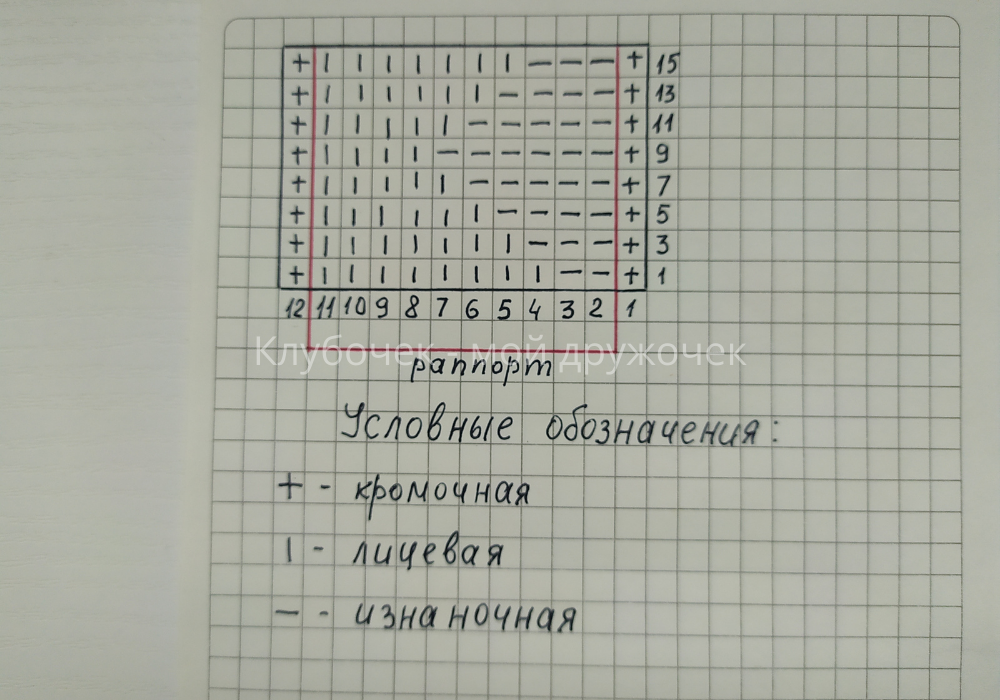 + | | | | | | | — — — + 15
+ | | | | | | — — — — + 13
+ | | | | | — — — — — + 11
+ | | | | — — — — — — + 9
+ | | | | | — — — — — + 7
+ | | | | | | — — — — + 5
+ | | | | | | | — — — + 3
+ | | | | | | | | — — + 1
12 11 10 9 8 7 6 5 4 3 2 1
Клубочек - мой дружочек
раппорт
Условные обозначения:
+ - кромочная
| - лицевая
— - изнаночная